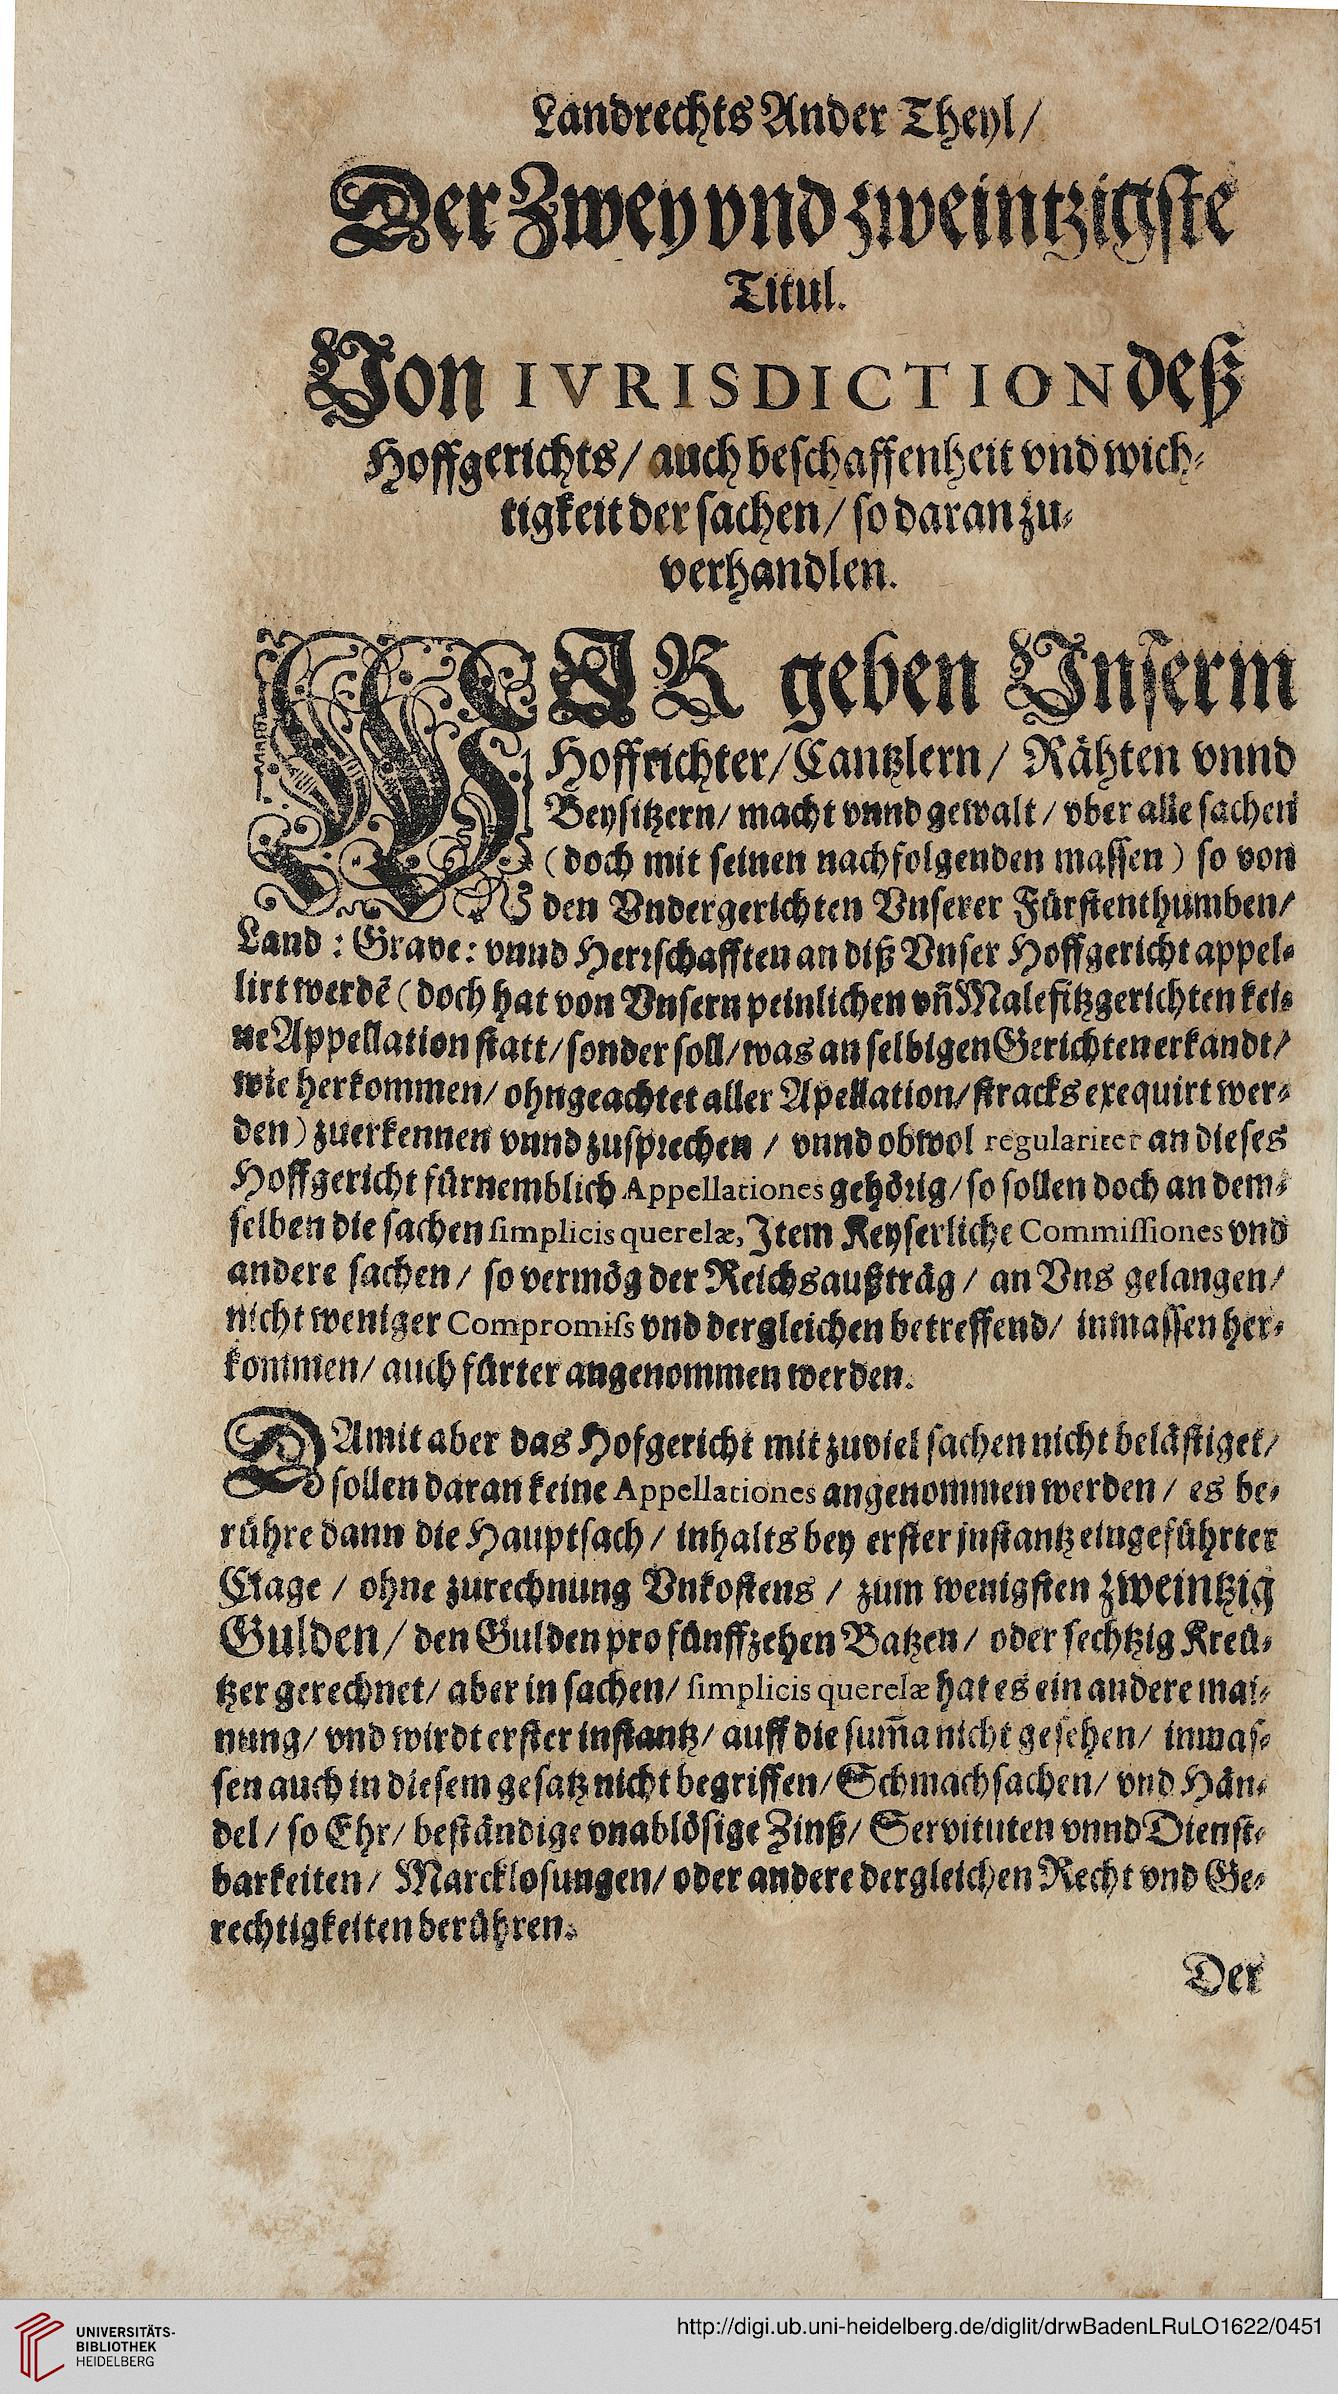 Landrechts Ander Theyl/
Der Zwey vnd zweintzigste
Titul.
Von IVRISDICTION deß
Hoffgerichts/ auch beschaffenheit vnd wich-
tigkeit der sachen/ so daran zu-
verhandlen.
WIR geben Vnserm
Hoffrichter/ Cantzlern/ Rähten vnnd
Beysitzern/ macht vnnd gewalt/ vber alle sachen
(doch mit seinen nachfolgenden massen) so von
den Vndergerichten Vnserer Fürstenthumben/
Land: Grave: vnnd Herrschafften an diß Vnser Hoffgericht appel-
lirt werdē (doch hat von Vnsern peinlichen vñ Malefitzgerichten kei-
ne Appellation statt/ sonder soll/ was an selbigen Gerichten erkandt/
wie herkommen/ ohngeachtet aller Apellation/ stracks exequirt wer-
den) zuerkennen vnnd zusprechen/ vnnd obwol regulariter an dieses
Hoffgericht fürnemblich Appellationes gehörig/ so sollen doch an dem-
selben die sachen simplicis querelæ, Item Keyserliche Commissiones vnd
andere sachen/ so vermög der Reichsaußträg/ an Vns gelangen/
nicht weniger Compromiss vnd dergleichen betreffend/ inmassen her-
kommen/ auch fürter angenommen werden.
DAmit aber das Hofgericht mit zuviel sachen nicht belästiget/
sollen daran keine Appellationes angenommen werden/ es be-
rühre dann die Hauptsach/ inhalts bey erster instantz eingeführter
Clage/ ohne zurechnung Vnkostens/ zum wenigsten zweintzig
Gulden/ den Gulden pro fünffzehen Batzen/ oder sechtzig Kreü-
tzer gerechnet/ aber in sachen/ simplicis querelæ hat es ein andere mai-
nung/ vnd wirdt erster instantz/ auff die sum̄a nicht gesehen/ inmas-
sen auch in diesem gesatz nicht begriffen/ Schmachsachen/ vnd Hän-
del/ so Ehr/ beständige vnablösige Zinß/ Servituten vnnd Dienst-
barkeiten/ Marcklosungen/ oder andere dergleichen Recht vnd Ge-
rechtigkeiten berühren.
Der
UNIVERSITÄTS-
BIBLIOTHEK
HEIDELBERG
http://digi.ub.uni-heidelberg.de/diglit/drwBadenLRuLO1622/0451